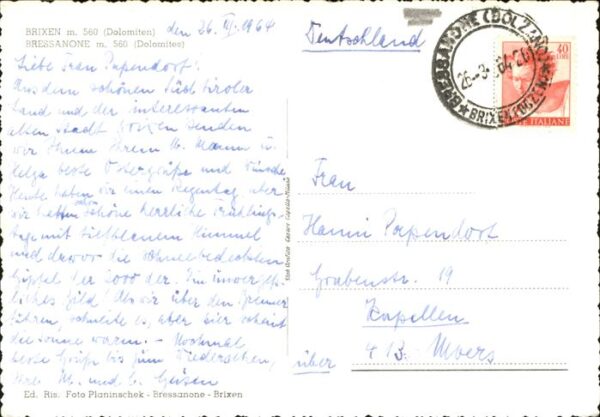 BRIXEN m. 560 (Dolomiten)
BRESSANONE m. 560 (Dolomites)
den 26. III. 1964
Liebe Frau Papendorf!
Aus dem schönen Südtiroler
Land und der interessanten
alten Stadt Brixen senden
wir Ihnen Ihrem lb. Mann u.
Helga beste Ostergrüße und Wünsche
Heute haben wir einen Regentag, aber
wir hatten schon schöne herrliche Frühlings-
tage mit tiefblauem Himmel
und davor die schneebedeckten
Gipfel der 3000 der. Ein unvergeß-
liches Bild! Als wir über den Brenner
führen, schneite es, aber hier scheint
die Sonne warm. - Nochmal
beste Grüße bis zum Wiedersehen,
Ihre M. und E.
Ed. Ris. Foto Planinschek - Bressanone - Brixen
Deutschland
BRESSANONE (BOLZANO)
26-3-64 20
BRIXEN (BOZEN)
40
LIRE
POSTE ITALIANE
Frau
Hanni Papendorf
Grabenstr. 19
Kapellen
über 413 Moers